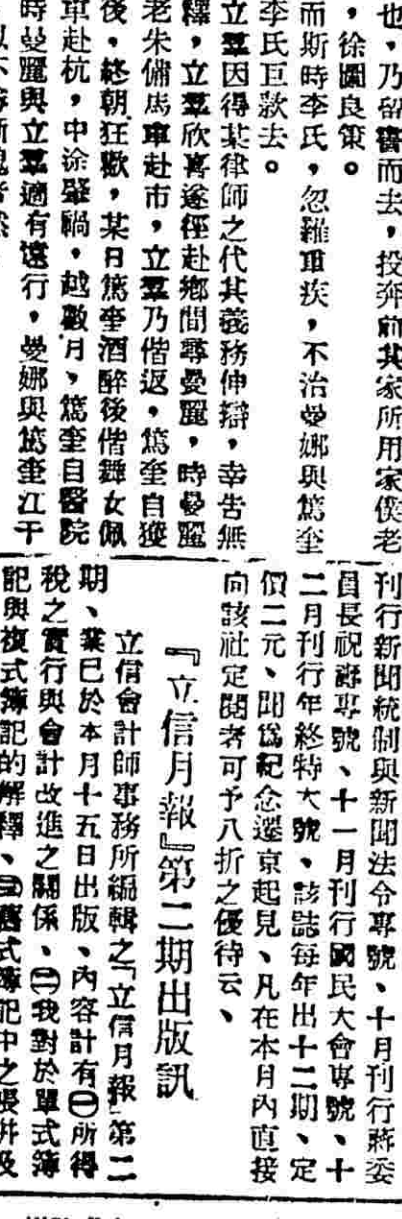 也，乃留書而去，投奔前其家所用家僕老
，徐圖良策。
而斯時李氏，忽罹重疾，不治曼娜與篤奎
李氏巨款去。
立羣因得某律師之代其義務伸辯，幸告無
釋，立羣欣喜遂徑赴鄉間尋曼麗，時曼麗
老朱備馬車赴市，立羣乃偕返，篤奎自獲
後，終朝狂歡，某日篤奎酒醉後偕舞女佩
車赴杭，中涂肇禍，越數月，篤奎自醫院
時曼麗與立羣適有遠行，曼娜與篤奎江干
刊行新聞統制與新聞法令專號、十月刊行蔣委
員長祝壽專號、十一月刊行國民大會專號、十
二月刊行年終特大號、該誌每年出十二期、定
價二元、聞爲紀念遷京起見、凡在本月內直接
向該社定閱者可予八折之優待云、
『立信月報』第二期出版訊
立信會計師事務所編輯之『立信月報』第二
期、業已於本月十五日出版、內容計有㊀所得
稅之實行與會計改進之關係、㊁我對於單式簿
記與複式簿記的解釋、㊂舊式簿記中之